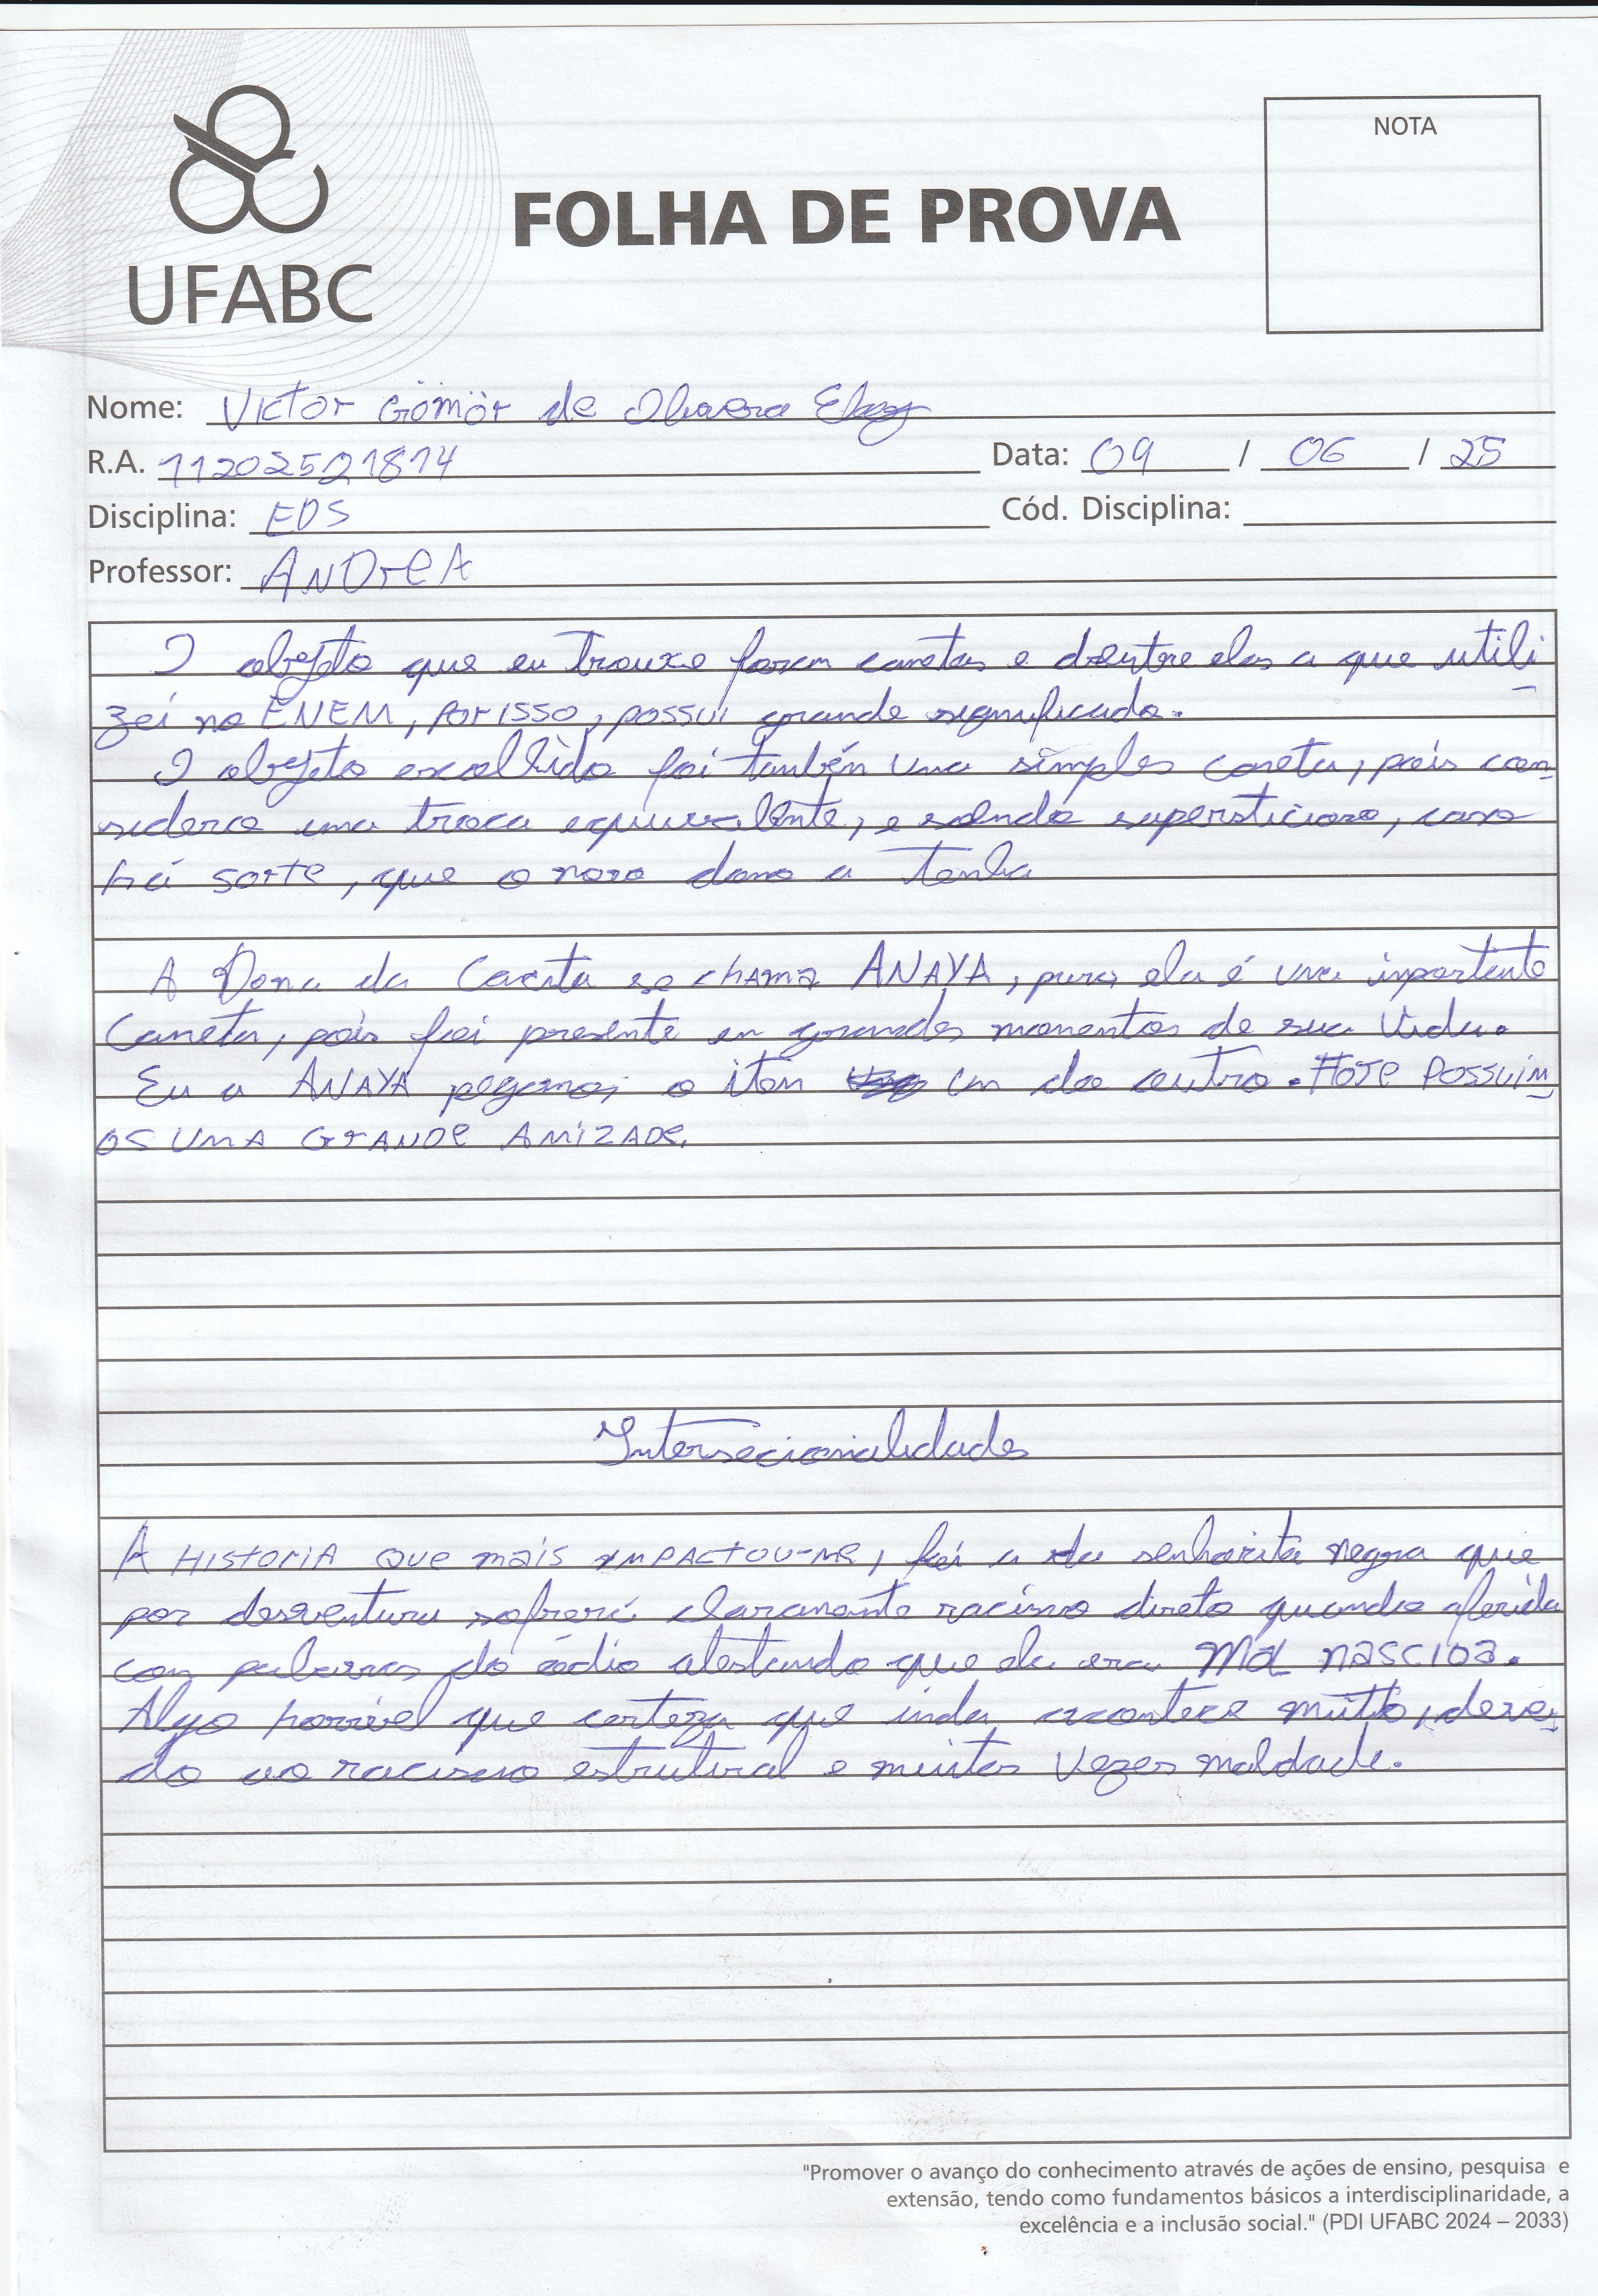 NOTA
FOLHA DE PROVA
UFABC
Nome: Victor Gömör de Oliveira
R.A. 11202521814 Data: 09 / 06 / 25
Disciplina: EDS Cód. Disciplina:
Professor: ANDreA
O objeto que eu trouxe foram canetas e dentre elas a que utili
zei no ENEM, por isso, possui grande significado.
O objeto escolhido foi também uma simples caneta, pois con
siderco uma troca equivalente, e sendo supersticioso, caso
há sorte, que o novo dono a tenha
A Dona da Caneta se chama ANAYA, para ela é uma importante
Caneta, pois foi presente em grandes momentos de sua Vida.
Eu a ANAYA pegamos o item um do outro. Hoje Possuim
os uma grande amizade.
Intersecionalidades
A Historia que mais impactou-me, foi a da senhorita negra que
por desventura sofrerá claramente racismo direto quando aferida
com palavras do ódio atestando que ela era Mal nascida.
Algo horrível que certeza que inda acontece muito, devi
do ao racismo estrutural e muitas vezes maldade.
"Promover o avanço do conhecimento através de ações de ensino, pesquisa e
extensão, tendo como fundamentos básicos a interdisciplinaridade, a
excelência e a inclusão social." (PDI UFABC 2024 – 2033)